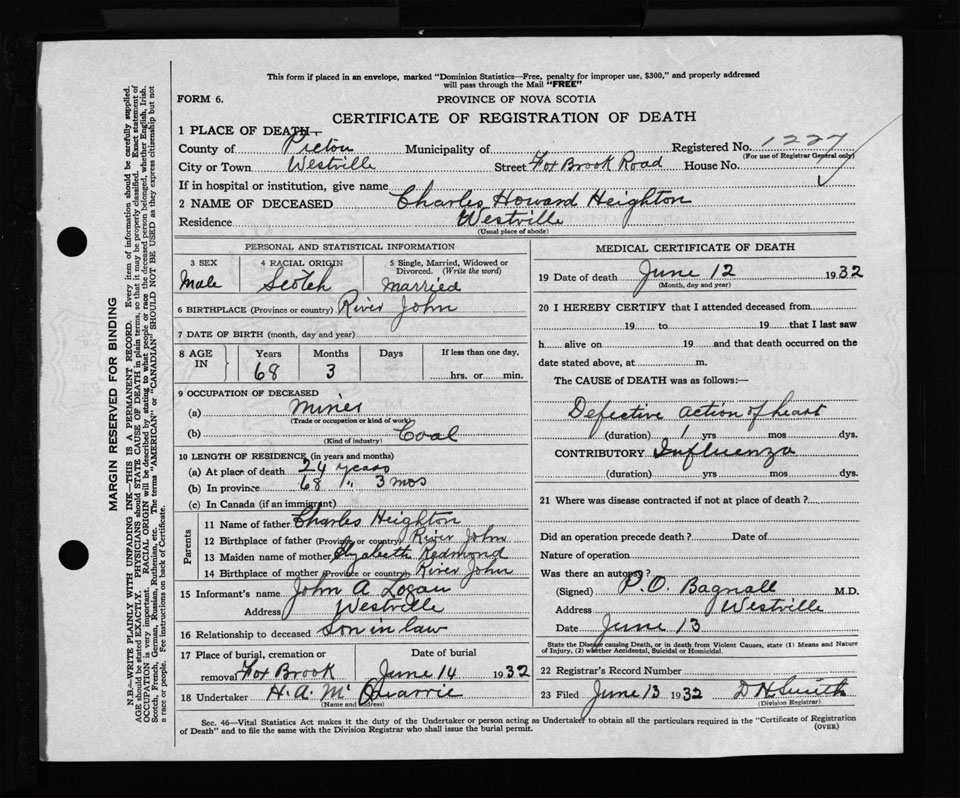 This form if placed in an envelope, marked "Dominion Statistics—Free, penalty for improper use, $300," and properly addressed
will pass through the Mail "FREE"
FORM 6. PROVINCE OF NOVA SCOTIA
CERTIFICATE OF REGISTRATION OF DEATH
1 PLACE OF DEATH—
County of Pictou Municipality of Registered No. 1227
(For use of Registrar General only)
City or Town Westville Street Fox Brook Road House No.
If in hospital or institution, give name
2 NAME OF DECEASED Charles Howard Heighton
Residence Westville
(Usual place of abode)
PERSONAL AND STATISTICAL INFORMATION
3 SEX 4 RACIAL ORIGIN 5 Single, Married, Widowed or
Divorced. (Write the word)
Male Scotch Married
6 BIRTHPLACE (Province or country) River John
7 DATE OF BIRTH (month, day and year)
8 AGE IN Years Months Days If less than one day,
68 3 hrs. or min.
9 OCCUPATION OF DECEASED
(a) Miner
(Trade or occupation or kind of work)
(b) Coal
(Kind of industry)
10 LENGTH OF RESIDENCE (in years and months)
(a) At place of death 24 years
(b) In province 68 " 3 mos
(c) In Canada (if an immigrant)
Parents
11 Name of father Charles Heighton
12 Birthplace of father (Province or country) River John
13 Maiden name of mother Elyabeth Redmond
14 Birthplace of mother (Province or country) River John
15 Informant's name John A Logan
Address Westville
16 Relationship to deceased Son in law
17 Place of burial, cremation or Date of burial
removal Fox Brook June 14 1932
18 Undertaker H. A. Mc
(Name and address)
MEDICAL CERTIFICATE OF DEATH
19 Date of death June 12 1932
(Month, day and year)
20 I HEREBY CERTIFY that I attended deceased from
19 to 19 that I last saw
h alive on 19 and that death occurred on the
date stated above, at m.
The CAUSE of DEATH was as follows:—
Defective action of heart
(duration) 1 yrs mos dys.
CONTRIBUTORY Influenza
(duration) yrs mos dys.
21 Where was disease contracted if not at place of death ?
Did an operation precede death ? Date of
Nature of operation
Was there an autopsy ?
(Signed) P. O. Bagnall M.D.
Address Westville
Date June 13
State the Disease causing Death, or in death from Violent Causes, state (1) Means and Nature
of Injury, (2) whether Accidental, Suicidal or Homicidal.
22 Registrar's Record Number
23 Filed June 13 1932 D H Smith
(Division Registrar)
Sec. 46—Vital Statistics Act makes it the duty of the Undertaker or person acting as Undertaker to obtain all the particulars required in the "Certificate of Registration
of Death" and to file the same with the Division Registrar who shall issue the burial permit. (OVER)
MARGIN RESERVED FOR BINDING
N.B.—WRITE PLAINLY WITH UNFADING INK—THIS IS A PERMANENT RECORD. Every item of information should be carefully supplied.
AGE should be stated EXACTLY. PHYSICIANS should STATE CAUSE OF DEATH in plain terms, so that it may be properly classified. Exact statement of
OCCUPATION is very important. RACIAL ORIGIN will be described by stating to what people or race the deceased person belonged, whether English, Irish,
Scotch, French, German, Russian, Ruthenian, etc. The terms "AMERICAN" or "CANADIAN" SHOULD NOT BE USED as they express citizenship but not
a race or people. See instructions on back of Certificate.